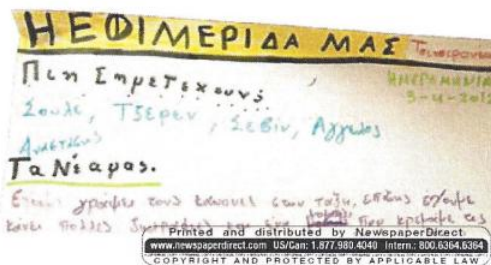 Η ΕΦΙΜΕΡΙΔΑ ΜΑΣ
ΗΜΕΡΟΜΗΝΙΑ
3-4-2012
Πιη Σημετεχουνς
Σουλε, Τζερεν, Σεβιν, Αγγελος
Αναστασης
Τα Νέαμας.
γράψει τους κανονες στην ταξη, επισης έχουμε
κάνει πολλες ζωγραφιες και ενα που κρεμαμε τες
Printed and distributed by NewspaperDirect
www.newspaperdirect.com US/Can: 1.877.980.4040 Intern.: 800.6364.6364
COPYRIGHT AND PROTECTED BY APPLICABLE LAW